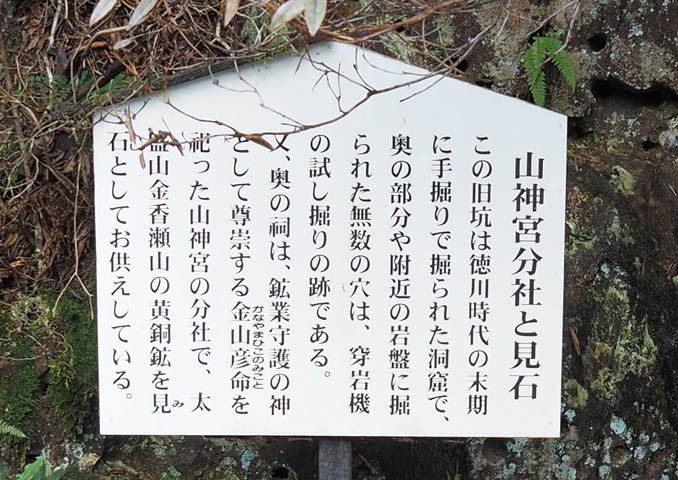 山神宮分社と見石
この旧坑は徳川時代の末期
に手掘りで掘られた洞窟で、
奥の部分や附近の岩盤に掘
られた無数の穴は、穿岩機
の試し掘りの跡である。
又、奥の祠は、鉱業守護の神
として尊崇する金山彦命を
かなやまひこのみこと
祀った山神宮の分社で、太
盛山金香瀬山の黄銅鉱を見
み
石としてお供えしている。